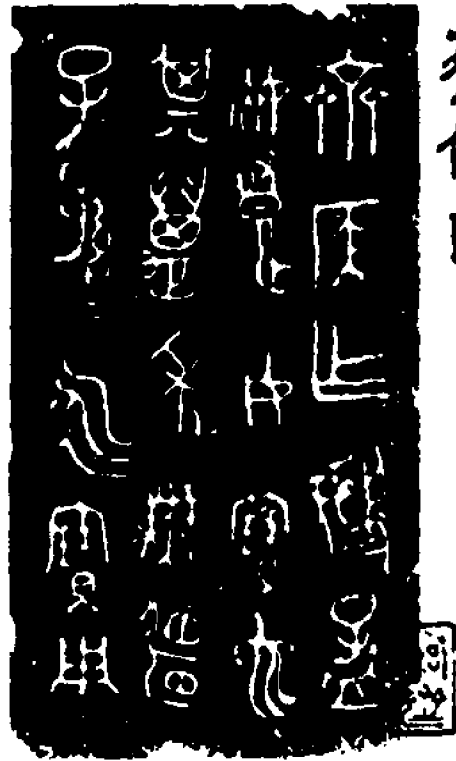 齊侯乍虢孟
姬良女寶它
其萬年無疆
子孫永寶用